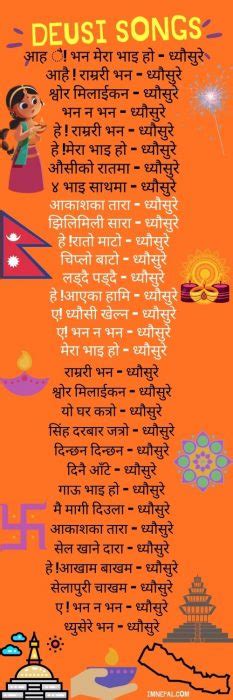 DEUSI SONGS
आह ै! भन मेरा भाइ हो - ध्यौसुरे
आहै ! राम्ररी भन - ध्यौसुरे
श्वोर मिलाईकन - ध्यौसुरे
भन न भन - ध्यौसुरे
हे ! राम्ररी भन - ध्यौसुरे
हे !मेरा भाइ हो - ध्यौसुरे
औसीको रातमा - ध्यौसुरे
४ भाइ साथमा - ध्यौसुरे
आकाशका तारा - ध्यौसुरे
झिलिमिली सारा - ध्यौसुरे
हे !रातो माटो - ध्यौसुरे
चिप्लो बाटो - ध्यौसुरे
लड्दै पड्दै - ध्यौसुरे
हे !आएका हामि - ध्यौसुरे
ए! ध्यौसी खेल्न - ध्यौसुरे
ए! भन न भन - ध्यौसुरे
मेरा भाइ हो - ध्यौसुरे
राम्ररी भन - ध्यौसुरे
श्वोर मिलाईकन - ध्यौसुरे
यो घर कत्रो - ध्यौसुरे
सिंह दरबार जत्रो - ध्यौसुरे
दिन्छन दिन्छन - ध्यौसुरे
दिनै आँटे - ध्यौसुरे
गाऊ भाइ हो - ध्यौसुरे
मै मागी दिउला - ध्यौसुरे
आकाशका तारा - ध्यौसुरे
सेल खाने दारा - ध्यौसुरे
हे !आखाम बाखम - ध्यौसुरे
सेलापुरी चाखम - ध्यौसुरे
ए ! भन न भन - ध्यौसुरे
ध्युसेरे भन - ध्यौसुरे
IMNEPAL.COM